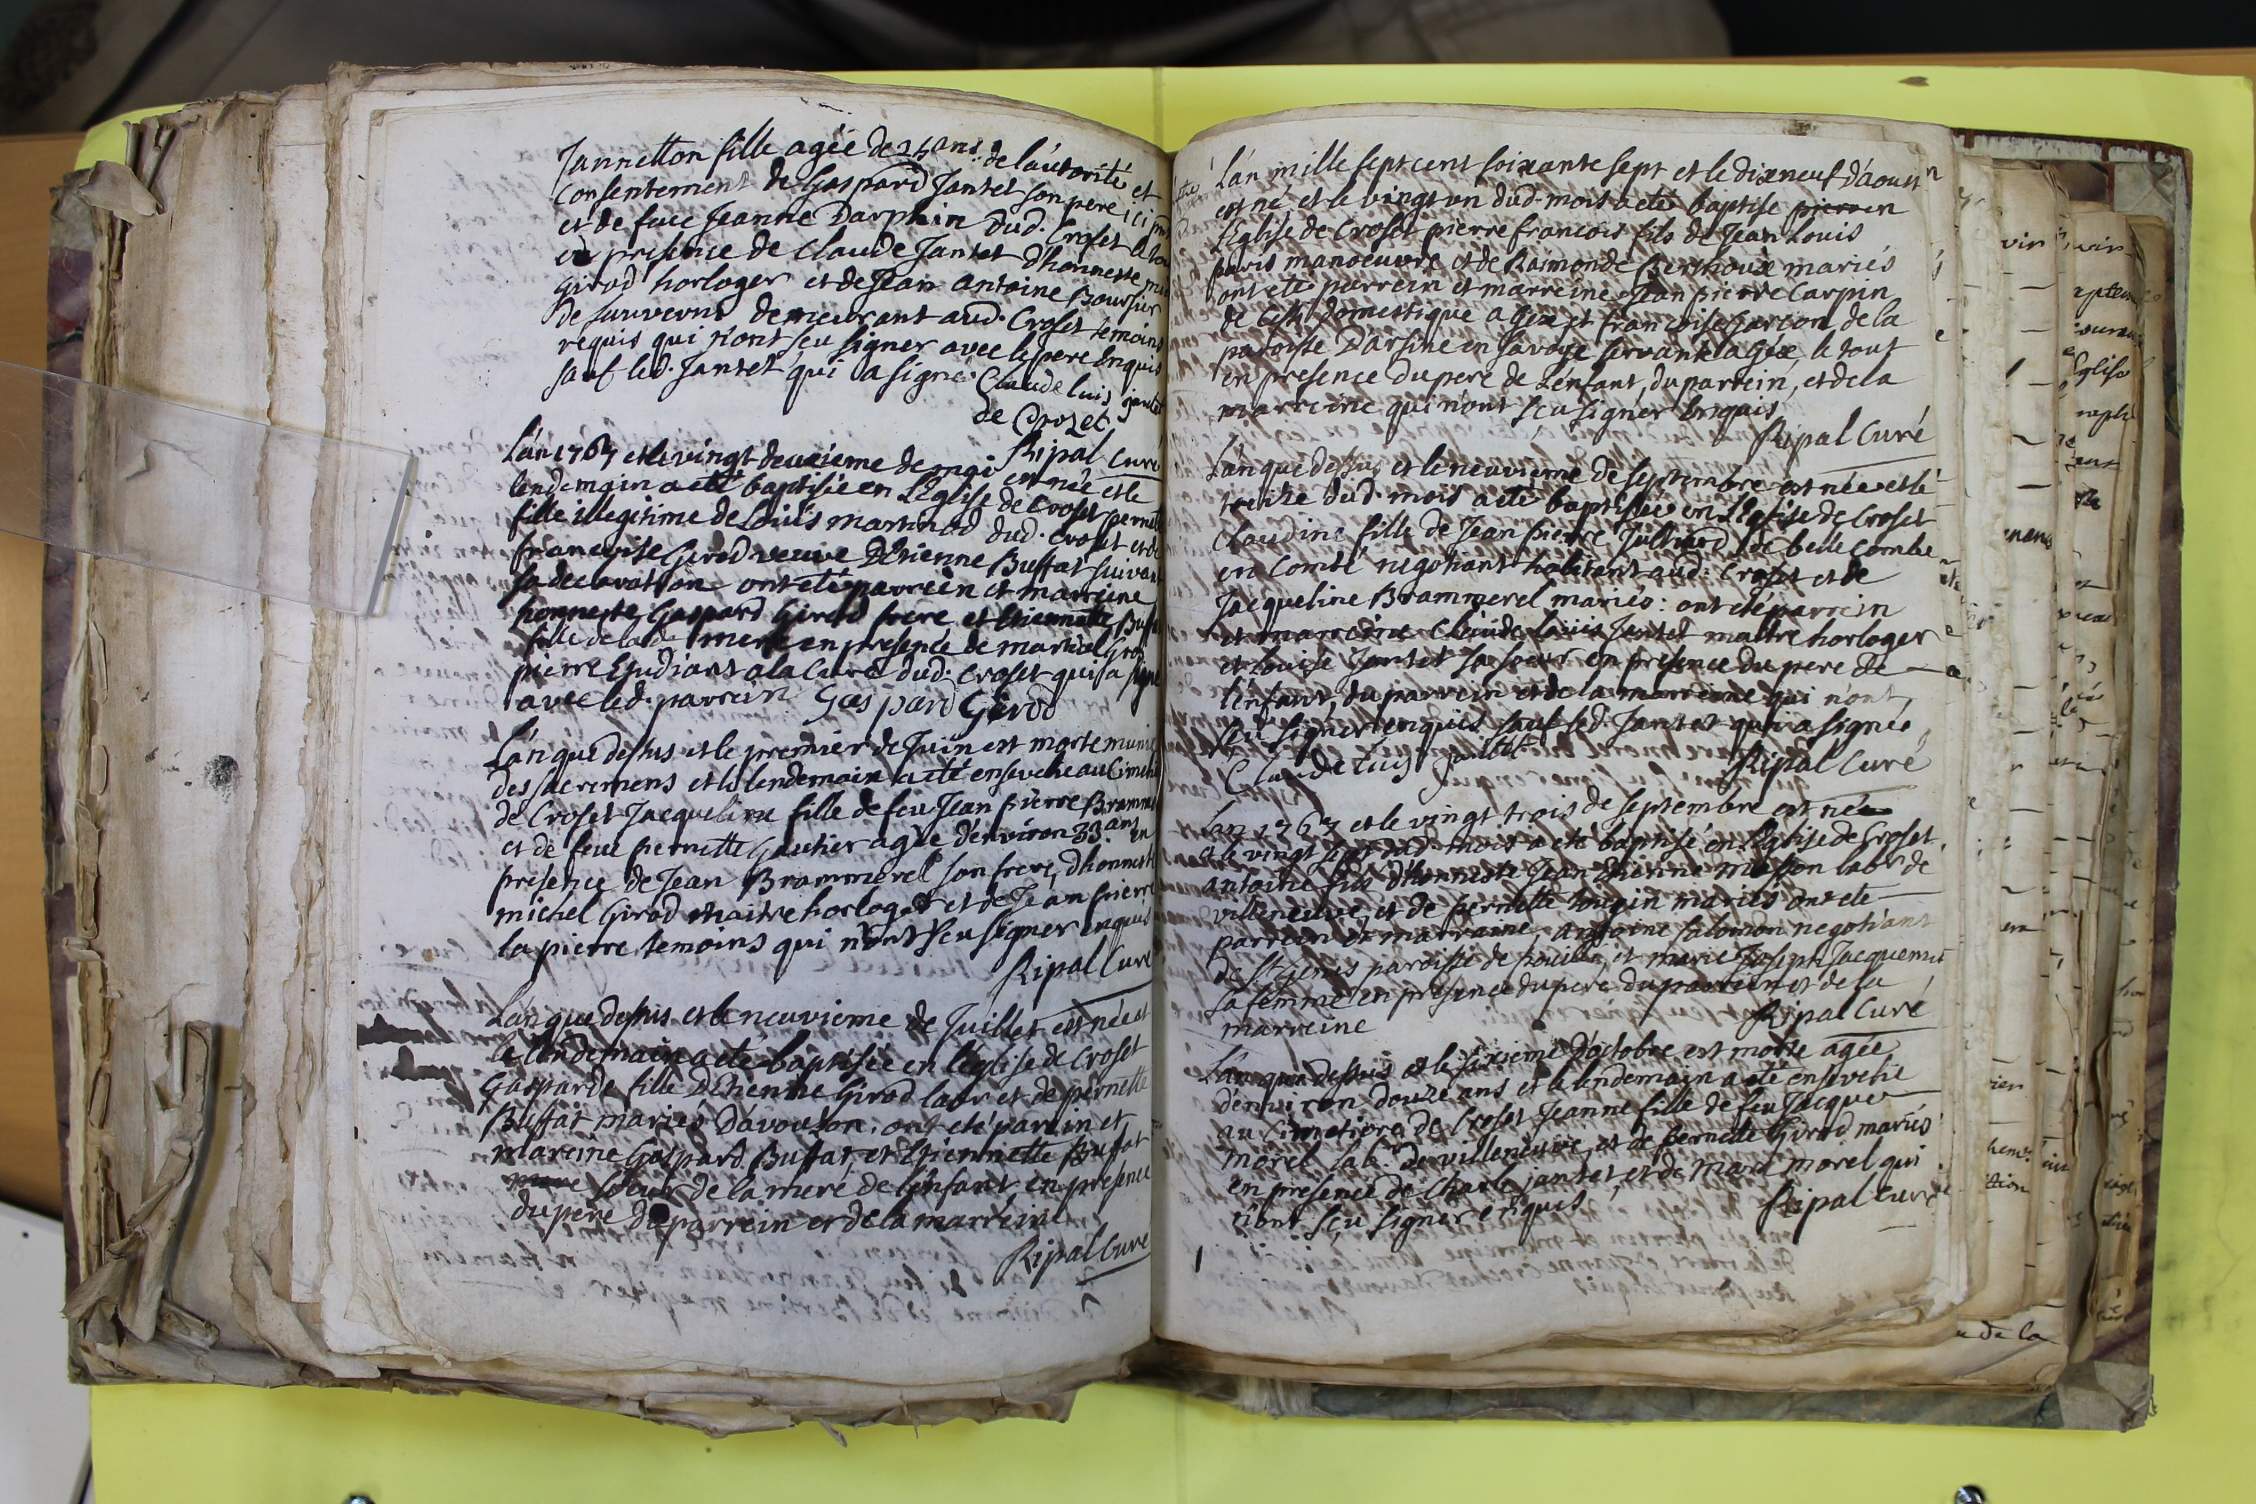 Jannetton fille agée de 24 ans de láutorité et
consentement de Gaspard Jantet son pere ici
et de feue Jeanne Darphin dud. Croset le tout
en presence de Claude Jantet d'honneste
girod horloger et de Jean Antoine Boursier
de Sauverni demeurant aud. Croset temoins
requis qui n'ont sçu signer avec lepere Enquis
sauf led. Jantet qui a signé. Claude luis jantet
de Crozet
Ripal Curé
Lán 1767 et le vingt deuxieme de mai est née et le
lendemain a eté baptisée en L'Eglise de Croset pernette
fille illegitime de Loüis martinod dud. Croset et de
francoise Girod veuve D'Etienne Buffat suivant
sa declaration ont eté parrein et marreine
honneste Gaspard Girod frere et Etiennette Buffat
fille de lade mere en presence de martial gros
pierre Etudiant a la Cure dud. Croset qui a signé
avec led. parrein Gaspard Girod
Lán que dessus et le premier de Juin est morte munie
des sacremens et le lendemain a eté ensevelie au Cimetie
de Croset Jacqueline fille de feu Jean pierre Bramme
et de feue pernette Gautier agée d'environ 33 ans en
presence de Jean Brammerel son frere, d'honneste
michel Girod maitre horloger et de Jean pierre
la pierre temoins qui n'ont sçeu signer enquis
Ripal Curé
Lán que dessus et le neuvieme de Juillet est née et
le lendemain a eté baptisée en l'eglise de Croset
Gasparde fille D'Etienne Girod labr et de pernette
Buffat mariés D'avouson. ont eté parrin et
mareine Gaspard Buffat, et Etiennette Buffat
soeur de la mere de l'enfant en presence
du pere du parrein et de la marreine
Ripal Curé
Lán mille sept cent soixante sept et le dixneuf D'áoust
est né et le vingt un dud. mois a eté baptisé pierre en
L'Eglise de Croset pierre francois fils de Jean Louis
paris manoeuvre et de Raimonde Berthoux mariés
ont eté parrein et marreine Jean pierre Carpin
de domestique a Gex et francoise Garcon de la
paroisse D'arsine en Savoye servante a Gex, le tout
en presence du pere de L'enfant, du parrein, et de la
marreine qui n'ont sçu signer Enquis
Ripal Curé
Lán que dessus et le neuvieme de septembre est née et le
treize dud. mois a eté baptisée en L'Eglise de Croset
Claudine fille de Jean pierre Julliard de belle combe
en Comté negotiant habitant aud. Croset et de
Jacqueline Brammerel mariés: ont eté parrein
et marreine Claude Louis Jantet maître horloger
et Louise Jantet sa soeur en presence du pere de
l'enfant, du parrein et de la marreine qui n'ont
sçu signer enquis sauf led. Jantet qui a signée
Claude luis jantet
Ripal Curé
Lan 1767 et le vingt trois de septembre est née
et le vingt sept dud. mois a eté baptisé en l'Eglise de Croset
antoine fils d'honneste Jean Etienne masson labr de
villeneuve et de pernette tougin mariés ont eté
parrein et marraine antoine salomon negotiant
de St Genis paroisse de pouilli, et marie Joseph Jacquemet
sa femme en presence du pere du parrein et de la
marreine
Ripal Curé
Lán que dessus et le sixieme D'octobre est morte agée
d'environ douze ans et le lendemain a eté ensevelie
au Cimetiere de Croset Jeanne fille de feu Jacque
morel lab. de villeneuve, et de pernette Girod mariés
en presence de Charle jantet et de Marc morel qui
n'ont sçu signer enquis
Ripal Curé